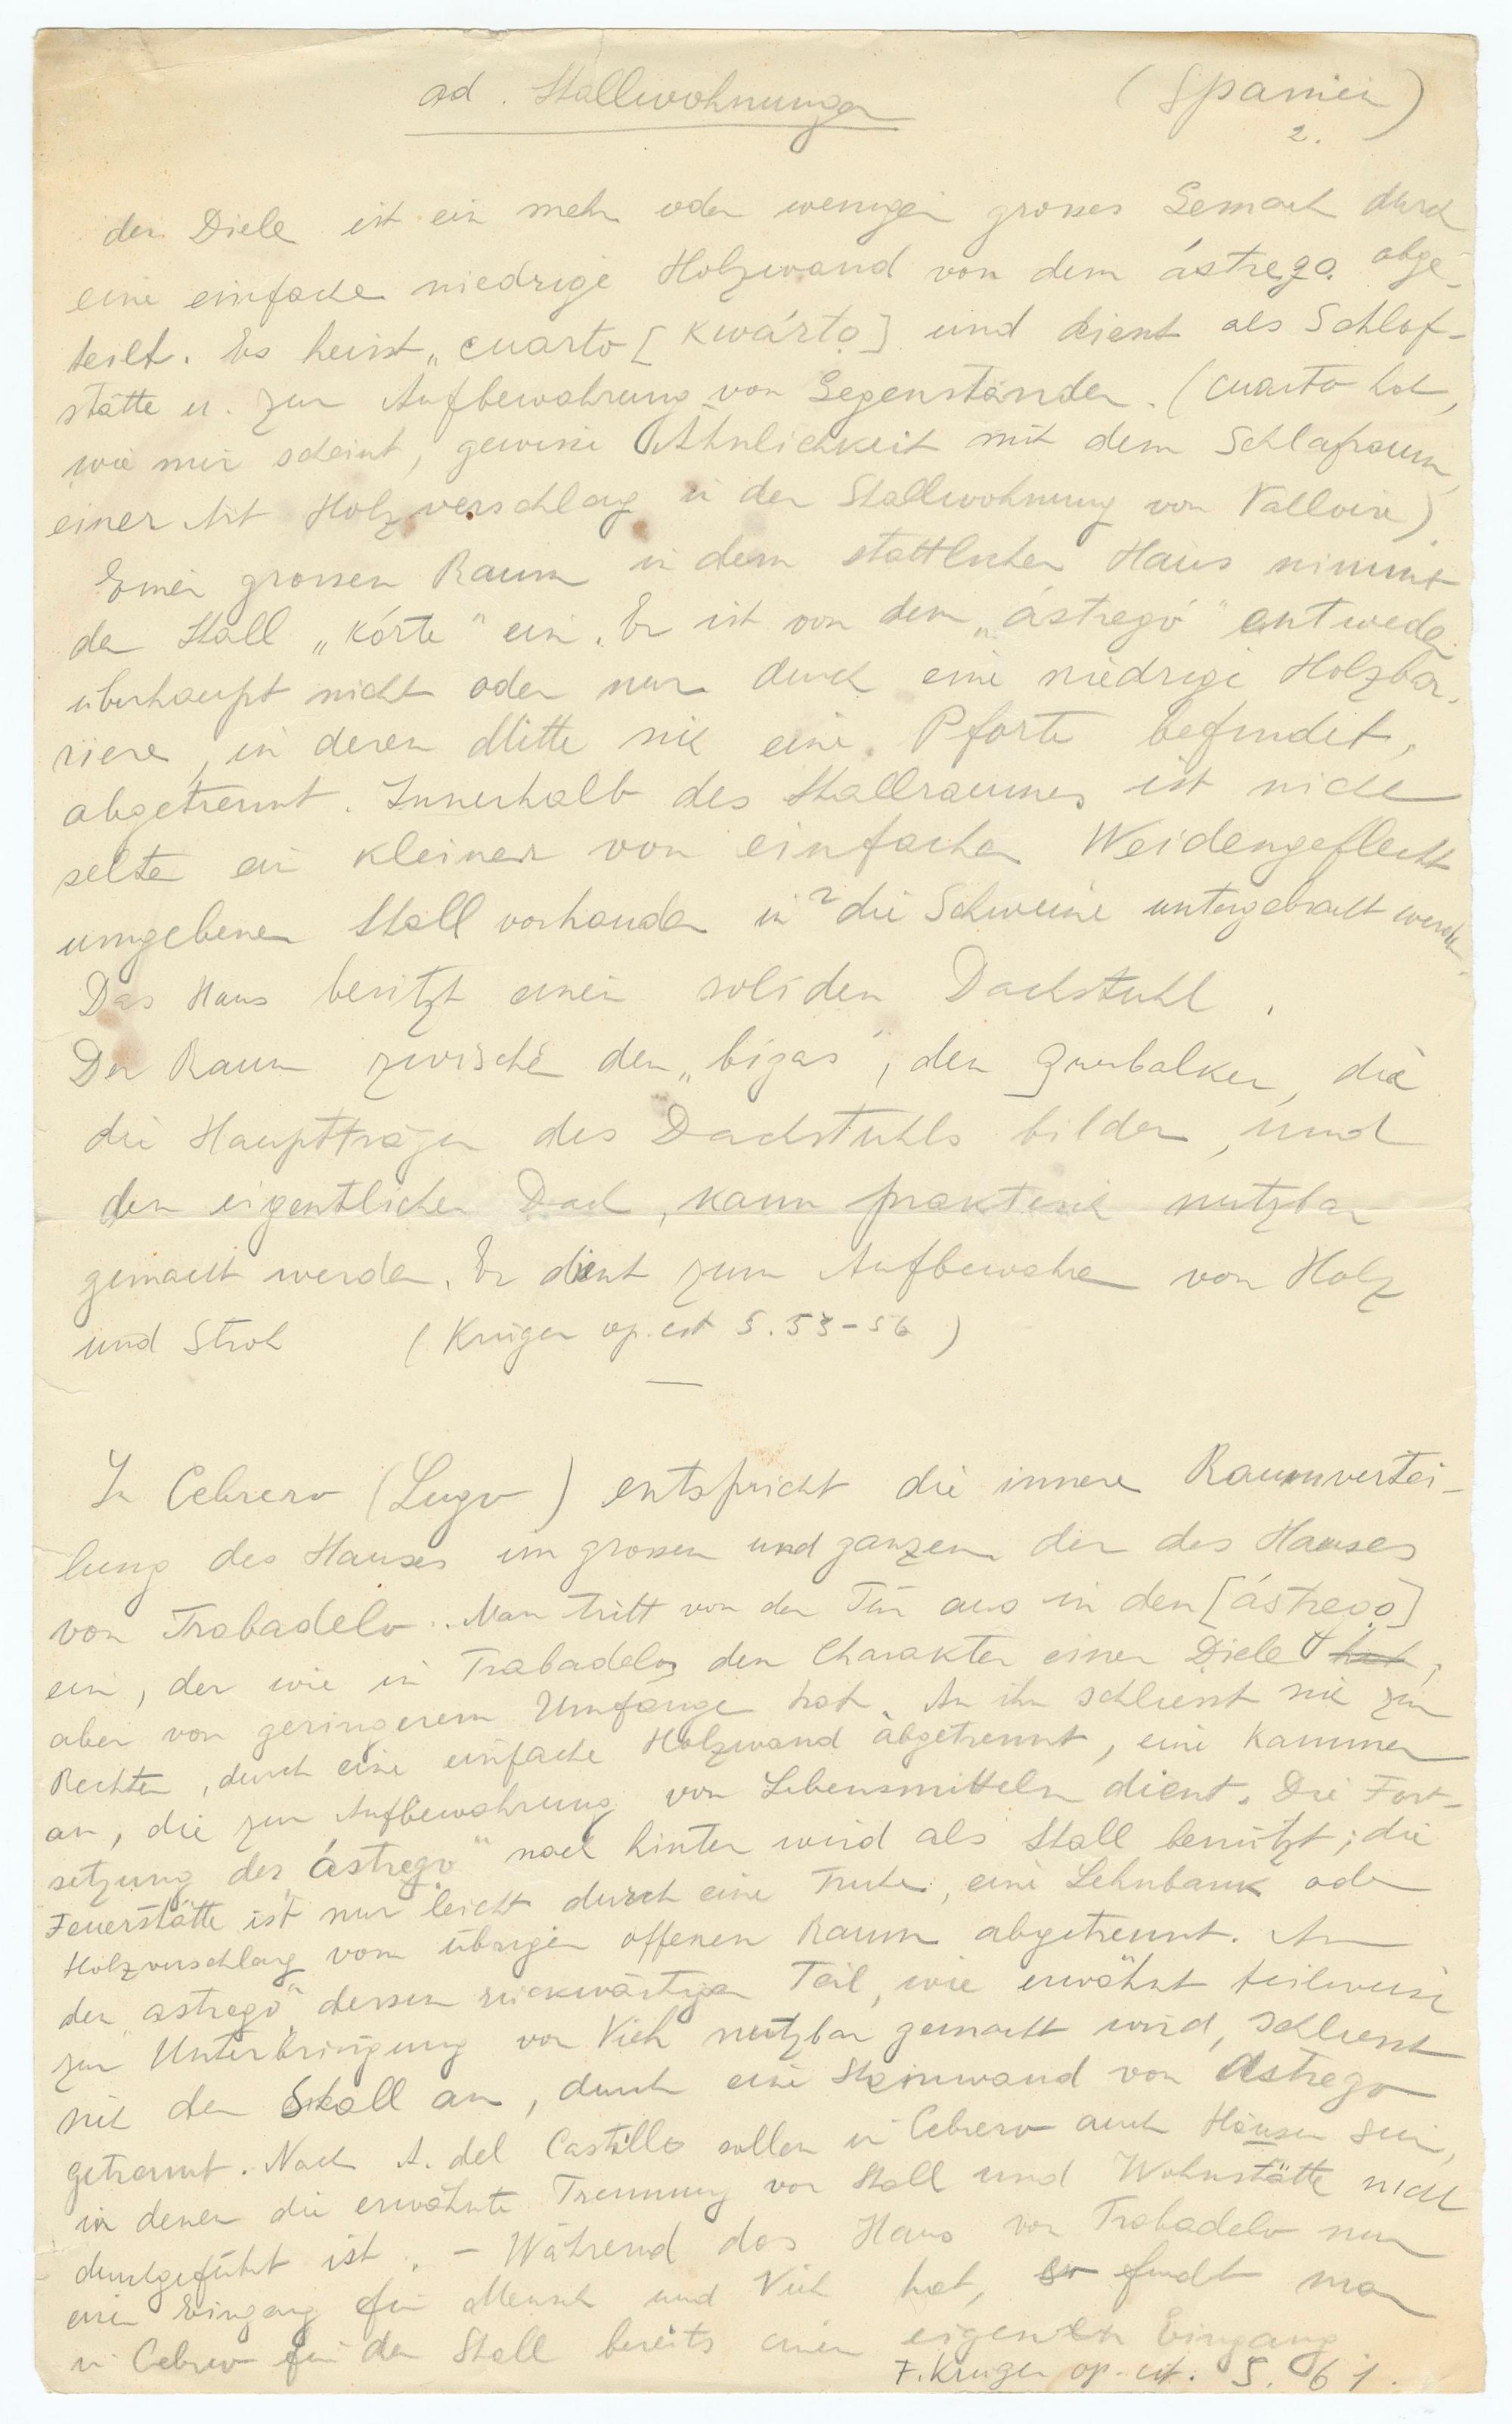 ad. Stallwohnungen (Spanien)
2.
der Diele ist ein mehr oder weniger grosses Gemach durch
eine einfache niedrige Holzwand von dem ástrego abge-
teilt. Es heisst „cuarto [kwárto] und dient als Schlaf-
stätte u. zur Aufbewahrung von Gegenständen. (cuarto hat,
wie mir scheint, gewisse Ähnlichkeit mit dem Schlafraum,
einer Art Holzverschlag in der Stallwohnung von Valloire).
Einen grossen Raum in dem stattlichen Haus nimmt
der Stall „kórte" ein. Er ist von dem „ástrego" entweder
überhaupt nicht oder nur durch eine niedrige Holzbar-
riere, in deren Mitte sich eine Pforte befindet,
abgetrennt. Innerhalb des Stallraumes ist nicht
selten ein kleiner von einfachen Weidengeflecht
umgebener Stall vorhanden in die Schweine untergebracht werden.
Das Haus besitzt einen soliden Dachstuhl.
Der Raum zwischen den „bigas", den Querbalken, die
die Hauptträger des Dachstuhls bilden, und
dem eigentlichen Dach, kann praktisch nutzbar
gemacht werden. Er dient zum Aufbewahren von Holz
und Stroh (Krüger op. cit S. 53-56)
In Cebrero (Lugo) entspricht die innere Raumvertei-
lung des Hauses im grossen und ganzen der des Hauses
von Trabadelo. Man tritt von der Tür aus in den [ástrego]
ein, der wie in Trabadelo, den Charakter einer Diele hat,
aber von geringerem Umfange hat. An ihn schliesst sich zur
Rechten, durch eine einfache Holzwand abgetrennt, eine Kammer
an, die zur Aufbewahrung von Lebensmitteln dient. Die Fort-
setzung des „ástrego" nach hinten wird als Stall benützt; die
Feuerstätte ist nur leicht durch eine Truhe, eine Lehnbank oder
Holzverschlag vom übrigen offenen Raum abgetrennt. An
den „astrego" dessen rückwärtiger Teil, wie erwähnt teilweise
zur Unterbringung von Vieh nutzbar gemacht wird, schliesst
sich der Stall an, durch eine Steinwand von Astrego
getrennt. Nach A. del Castillo sollen in Cebrero auch Häuser sein,
in denen die erwähnte Trennung von Stall und Wohnstätte nicht
durchgeführt ist. - Während das Haus von Trabadelo nur
einen Eingang für Mensch und Vieh hat, so findet man
in Cebrero für den Stall bereits einen eigenen Eingang
F. Krüger op. cit. S. 61.